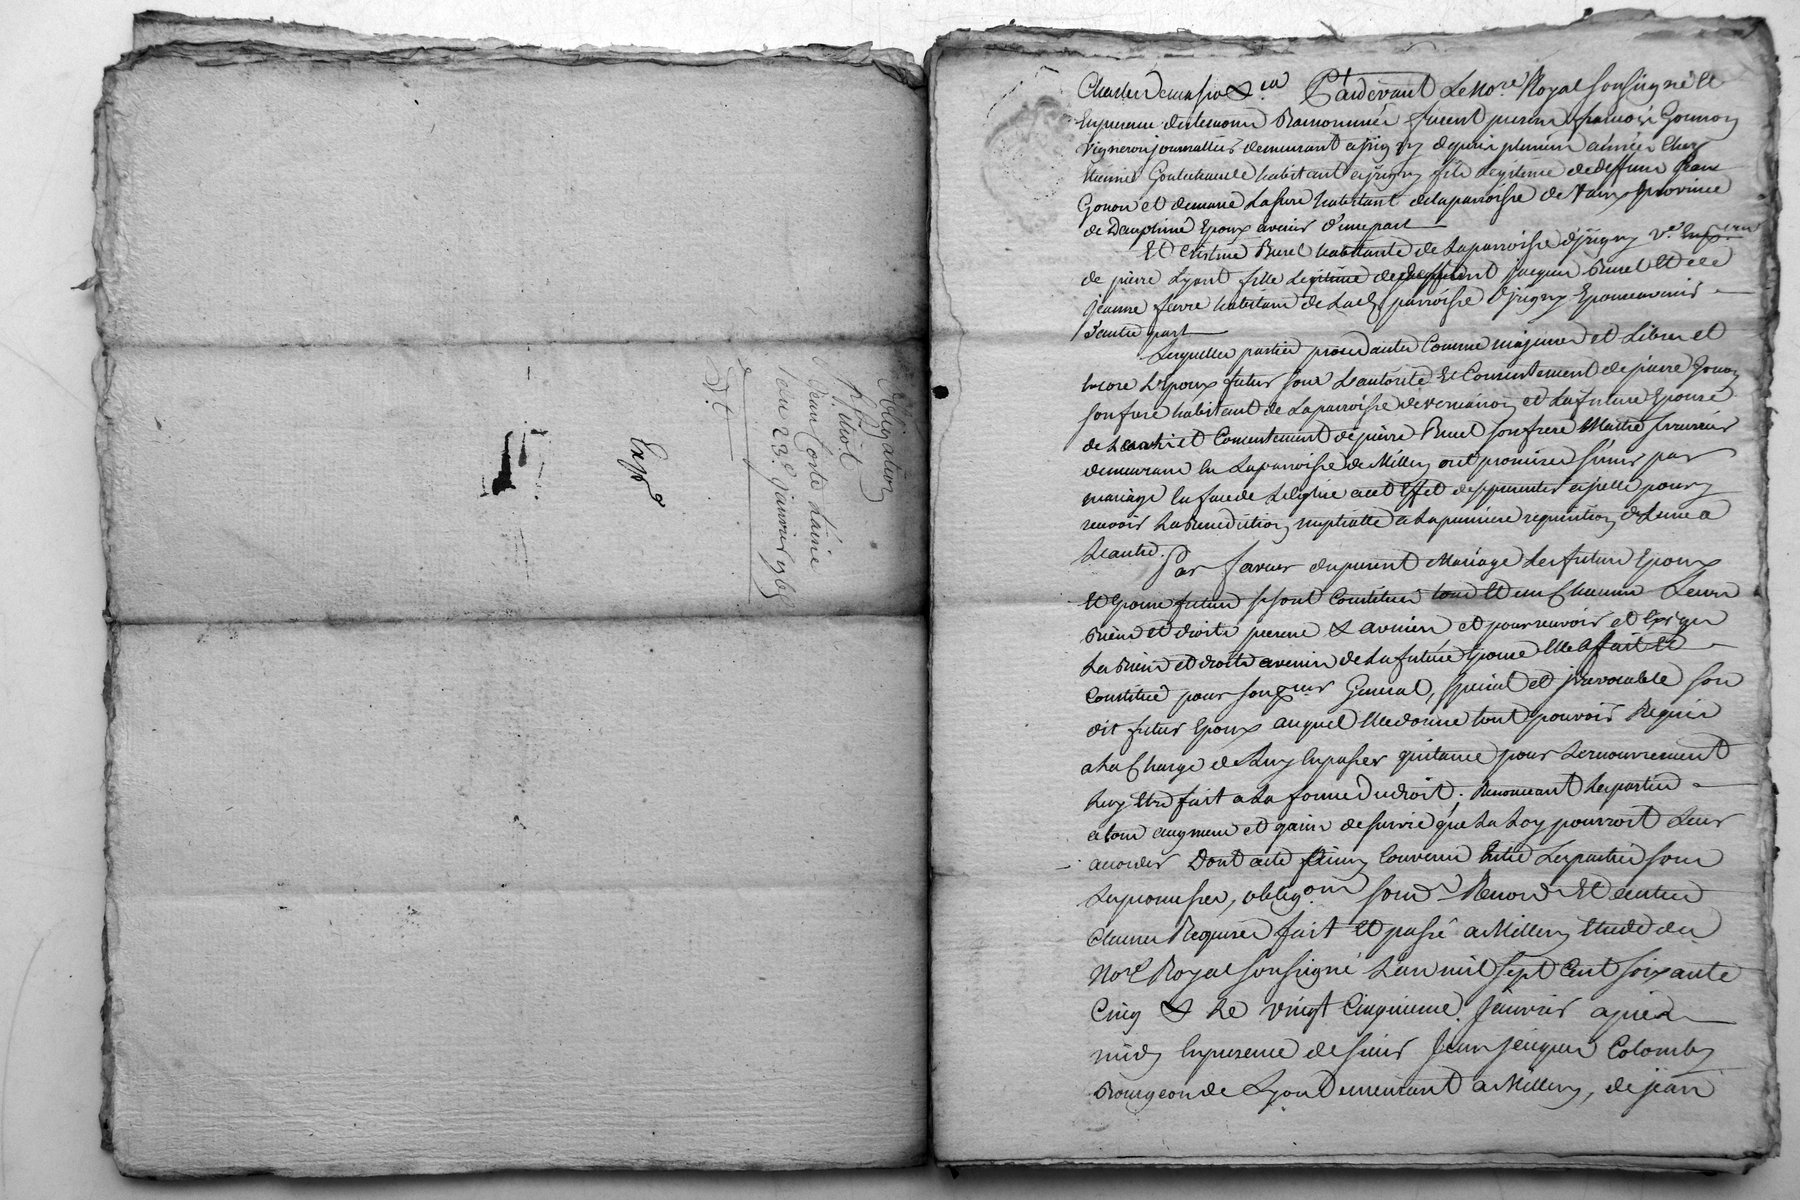 Obligation
Jean Conte Laine
Du 23e janvier 1765
Expé
Pardevant Le Nore Royal Soussigné Et
En presence des temoins furent presens françois Gonon
vigneron journallier demeurant a jrigny depuis plusieurs années chez
habitant a jrigny fils Legitime de deffunt Jean
Gonon et de marie habitant de la parroisse de Vaux province
de Dauphiné Epoux avenir d'une part
Et Cristine Burel habitante de La parroisse d'jrigny ve
de pierre Lyout fille Legitime de deffunt jacques Burel Et de
jeanne favre habitans de La de parroisse d'jrigny Epouse avenir
d'autre part
Lesquelles parties procedantes Comme majeures et Libres et
Encore L'Epoux futur sous L'autorité Et Consentement de pierre Gonon
son frere habitant de La parroisse de et La future Epouse
de et Consentement de pierre Burel son frere Maitre
demeurant En La parroisse de Millery ont promis s'unir par
mariage En face de L'eglise a cet Effet de se presenter a jcelle pour y
recevoir La Benediction nuptialle a La premiere requisition de L'une a
L'autre.
En faveur du present Mariage Les futurs Epoux
Et Epouse future se sont Constitués tous Et un Chacuns Leurs
Biens et droits presens & avenirs et pour recevoir et Exiger
Les Biens et droits avenirs de La future Epouse Elle a fait Et
Constitué pour son pcur General, special et jrrevocable son
dit futur Epoux auquel Elle donne tout pouvoir Requis
a La Charge de Luy En passer quitance pour Le recouvrement
Luy Etre fait a La forme du droit; Renonceant Les parties
a tous augmens et gains de survie que La Loy pourroit Leur
accorder Dont acte Convenu Entre Les parties sous
Les promesses, obligons soums Renons Et autres
Clauses Requises fait Et passé a Millery Etude du
Nore Royal soussigné L'an mil sept Cent soixante
Cinq & Le vingt Cinquieme Janvier après
midy En presence de sieur Jean jacques Colomby
Bourgeois de Lyon demeurant a Millery, de jean